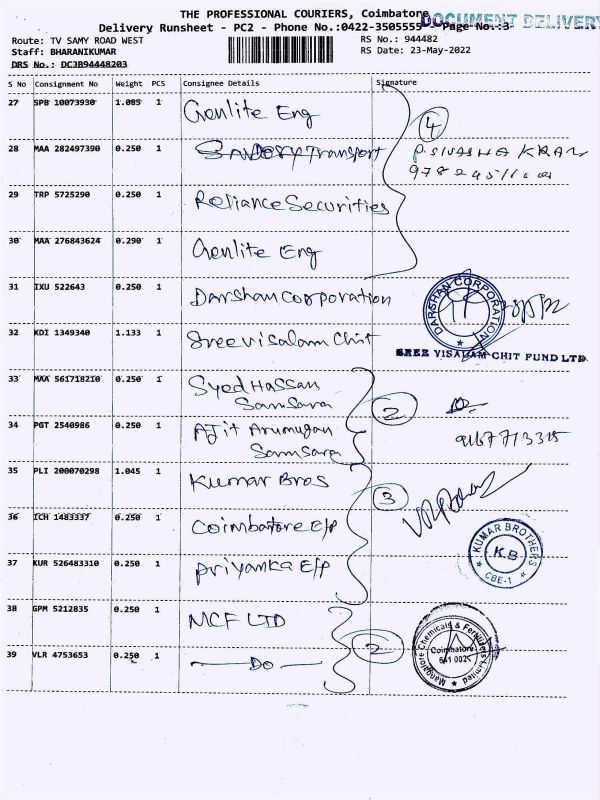 THE PROFESSIONAL COURIERS, Coimbatore
DOCUMENT DELIVERY
Delivery Runsheet - PC2 - Phone No.:0422-3505555 - Page No.:3
Route: TV SAMY ROAD WEST
RS No.: 944482
Staff: BHARANIKUMAR
RS Date: 23-May-2022
DRS No.: DCJB94448203
S No Consignment No Weight PCS Consignee Details Signature
27 SPB 10073930 1.085 1 Genlite Eng
4
28 MAA 282497390 0.250 1 Transport
29 TRP 5725290 0.250 1 Reliance Securities
30 MAA 276843624 0.290 1 Genlite Eng
31 IXU 522643 0.250 1 Darshan Corporation
DARSHAN CORPORATION
32 KDI 1349340 1.133 1 Sree Visalam Chit
SREE VISALAM CHIT FUND LTD
33 MAA 561718210 0.250 1 Syed Hassan
Samsara
2
34 PGT 2540986 0.250 1 Ajit Arumugan
Samsara
35 PLI 200070298 1.045 1 Kumar Bros
3
36 ICH 1483337 0.250 1 Coimbatore E/p
KUMAR BROTHERS
K.B
CBE-1
37 KUR 526483310 0.250 1 Priyanka E/p
38 GPM 5212835 0.250 1 MCF LTD
2
Mangalore Chemicals & Fertilizers Limited
Coimbatore
641 002
39 VLR 4753653 0.250 1 Do